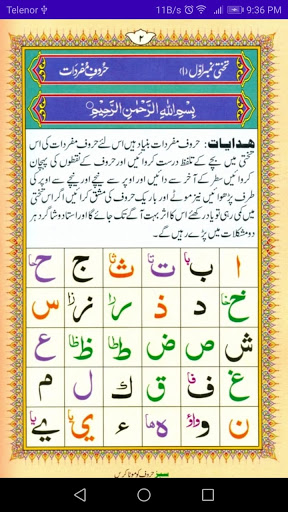 Telenor
11B/s
9:36 PM
۲
تختی نمبر اوّل (۱) حُرُوفِ مُفرَدَات
بِسْمِ اللهِ الرَّحْمٰنِ الرَّحِيْمِ
هدایات: حروف مفردات بنیاد ہیں اس لئے حروف مفردات کی اس
تختی میں بچے کے تلفظ درست کروائیں اور حروف کے نقطوں کی پہچان
کروائیں سطر کے آخر سے دائیں اور اوپر سے نیچے اور نیچے سے اوپر کی
طرف پڑھوائیں نیز موٹے اور باریک حروف کی مشق کرائیں اگر اس تختی
میں کمی رہی تو یاد رکھئے اس کا اثر بہت آگے تک جائے گا اور استاد و شاگرد ہر
دو مشکلات میں پڑے رہیں گے۔
ا ب با ت تا ث ثا ج ح حا
خ خا د ذ ر را ز زا س
ش ص ض ط طا ظ ظا ع
غ ف فا ق ك ل م
ن و واؤ ه ها ء ي يا ے يا
سبز حروف کو موٹا کریں